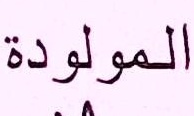 المولودة